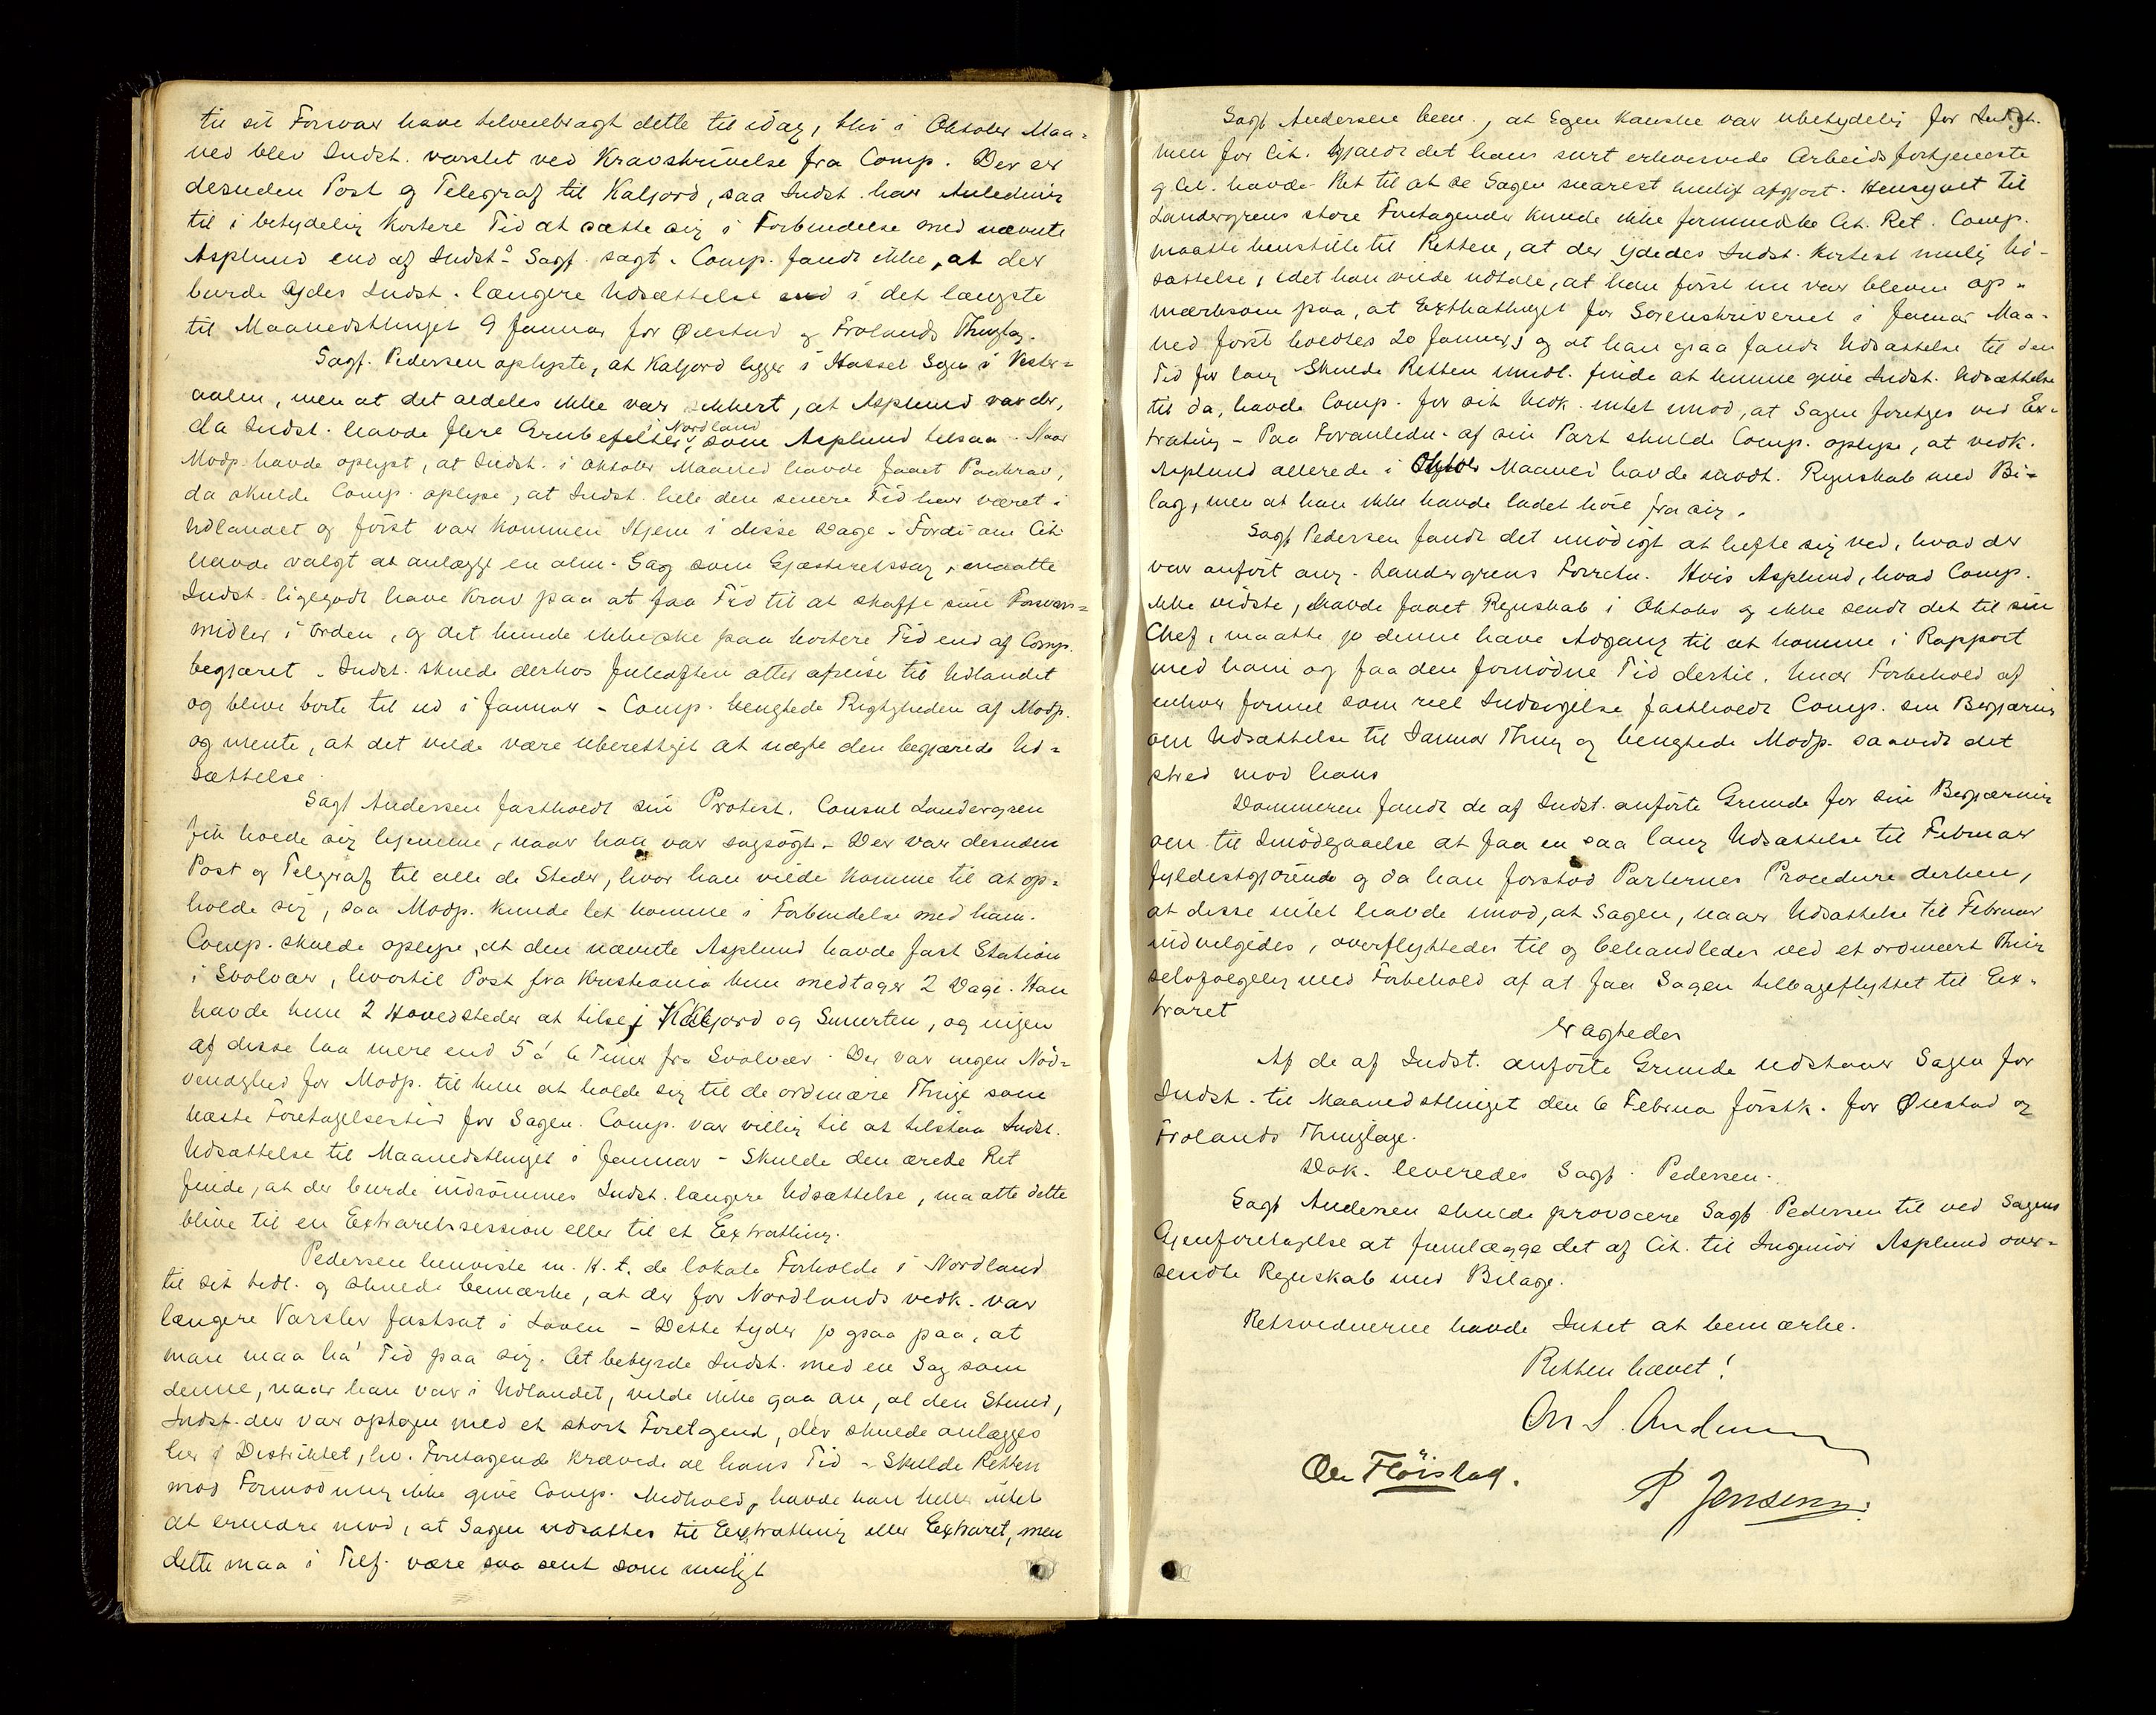 til sit Forsvar have tilveiebragt dette til idag, thi i Oktober Maa-
ned blev Indst. varslet ved Kravskrivelse fra Comp. Der er
desuden Post og Telegraf til Kaljord, saa Indst. har Anledning
til i betydelig kortere Tid at sætte sig i Forbindelse med nævnte
Asplund end af Indst.s Sagf. sagt. Comp. fandt ikke, at der
burde ydes Indst. længere Udsættelse end i det længste
til Maanedsthinget 9 Januar for Øiestad og Frolands Thinglag.
Sagf. Pedersen oplyste, at Kaljord ligger i Hassel Sogn i Vester-
aalen, men at det aldeles ikke var sikkert, at Asplund var der,
da Indst. havde flere Grubefelter i Nordland, som Asplund tilsaa. Naar
Modp. havde oplyst, at Indst. i Oktober Maaned havde faaet Paakrav,
da skulde Comp. oplyse, at Indst. hele den senere Tid har været i
Udlandet og først var kommen hjem i disse Dage. Fordi om Cit.
havde valgt at anlægge en alm. Sag som Gjæsteretssag, maatte
Indst. ligegodt have Krav paa at faa Tid til at skaffe sine Forsvars-
midler i Orden, og det kunde ikke ske paa kortere Tid end af Comp.
begjæret. Indst. skulde derhos Juleaften atter afreise til Udlandet
og blive borte til ud i Januar. Comp. benegtede Rigtigheden af Modp.
og mente, at det vilde være uberettiget at nægte den begjærede Ud-
sættelse.
Sagf Andersen fastholdt sin Protest. Consul Landergren
fik holde sig hjemme, naar han var sagsøgt. Der var desuden
Post og Telegraf til alle de Steder, hvor han vilde komme til at op-
holde sig, saa Modp. kunde let komme i Forbindelse med ham.
Comp. skulde oplyse, at den nævnte Asplund havde fast Station
i Svolvær, hvortil Post fra Kristiania kun medtager 2 Dage. Han
havde kun 2 Hovedsteder at tilse, Kaljord og Smorten, og ingen
af disse laa mere end 5 á 6 Timer fra Svolvær. Der var ingen Nød-
vendighed for Modp. til kun at holde sig til de ordinære Thinge som
næste Foretagelsestid for Sagen. Comp. var villig til at tilstaa Indst.
Udsættelse til Maanedsthinget i Januar. Skulde den ærede Ret
finde, at der burde indrømmes Indst. længere Udsættelse, maatte dette
blive til en Extraretssession eller til et Extrathing.
Pedersen henviste m. H. t. de lokale Forholde i Nordland
til sit tidl. og skulde bemærke, at der for Nordlands vedk. var
længere Varsler fastsat i Loven. Dette tyder jo ogsaa paa, at
man maa ha' Tid paa sig. At betyrde Indst. med en Sag som
denne, naar han var i Udlandet, vilde ikke gaa an, al den Stund,
Indst. der var optagen med et stort Foretagende, der skulde anlægges
her i Distriktet, hv. Foretagende krævede al hans Tid. Skulde Retten
mod Formodning ikke give Comp. Medhold, havde han heller intet
at erindre mod, at Sagen udsattes til Extrathing eller Extraret, men
dette maa i Tilf. være saa sent som muligt
Sagf Andersen bem., at Sagen kanske var ubetydelig for Indst.
men for Cit. gjaldt det hans surt erhvervede Arbeidsfortjeneste
og Cit. havde Ret til at se Sagen snarest mulig afgjort. Hensynet til
Landergrens store Foretagender kunde ikke forrindske Cit. Ret. Comp.
maatte henstille til Retten, at der ydedes Indst. kortest mulig Ud-
sættelse, idet han vilde udtale, at han først nu var bleven op-
mærksom paa, at Extrathinget for Sorenskriveriet i Januar Maa-
ned først holdtes 20 Januar, og at han ogsaa fandt Udsættelse til den
Tid for lang. Skulde Retten imidl. finde at kunne give Indst. Udsættelse
til da, havde Comp. for sit Vedk. intet imod, at Sagen foretages ved Ex-
trating. Paa Foranledn. af sin Part skulde Comp. oplyse, at vedk.
Asplund allerede i Oktober Maaned havde modt. Regnskab med Bi-
lag, men at han ikke havde ladet høre fra sig.
Sagf Pedersen fandt det unødigt at hefte sig ved, hvad der
var anført ang. Landergrens Forretn. Hvis Asplund, hvad Comp.
ikke vidste, havde faaet Regnskab i Oktober og ikke sendt det til sin
Chef, maatte jo denne have Adgang til at komme i Rapport
med ham og faa den fornødne Tid dertil. Under Forbehold af
enhver formel som reel Indsigelse fastholdt Comp. sin Begjæring
om Udsættelse til Januar Thing og benegtede Modp. saavidt det
stred mod hans
Dommeren fandt de af Indst. anførte Grunde for sin Begjæring
om til Imødegaaelse at faa en saa lang Udsættelse til Februar
fyldestgjørende og da han forstod Parternes Procedure derhen,
at disse intet havde imod, at Sagen, naar Udsættelse til Februar
indvilgedes, overflyttedes til og behandledes ved et ordinært Thing
selvfølgelig med Forbehold af at faa Sagen tilbageflyttet til Ex-
traret
Eragtedes
Af de af Indst. anførte Grunde udstaar Sagen for
Indst. til Maanedsthinget den 6 Februa førstk. for Øiestad og
Frolands Thinglage.
Dok. leveredes Sagf. Pedersen.
Sagf Andersen skulde provocere Sagf Pedersen til ved Sagens
Gjenforetagelse at fremlægge det af Cit. til Ingeniør Asplund over-
sendte Regnskab med Bilage.
Retsvidnerne havde Intet at bemærke.
Retten hævet!
On S. Andersen
Ole Fløistad.
P Jensen.